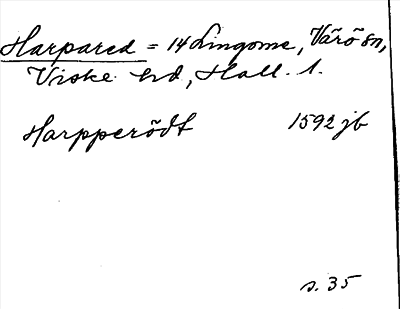 Harpared = 14 Lingome, Värö sn,
Viske hd, Hall. l.
Harpperödt 1592 jb
s. 35